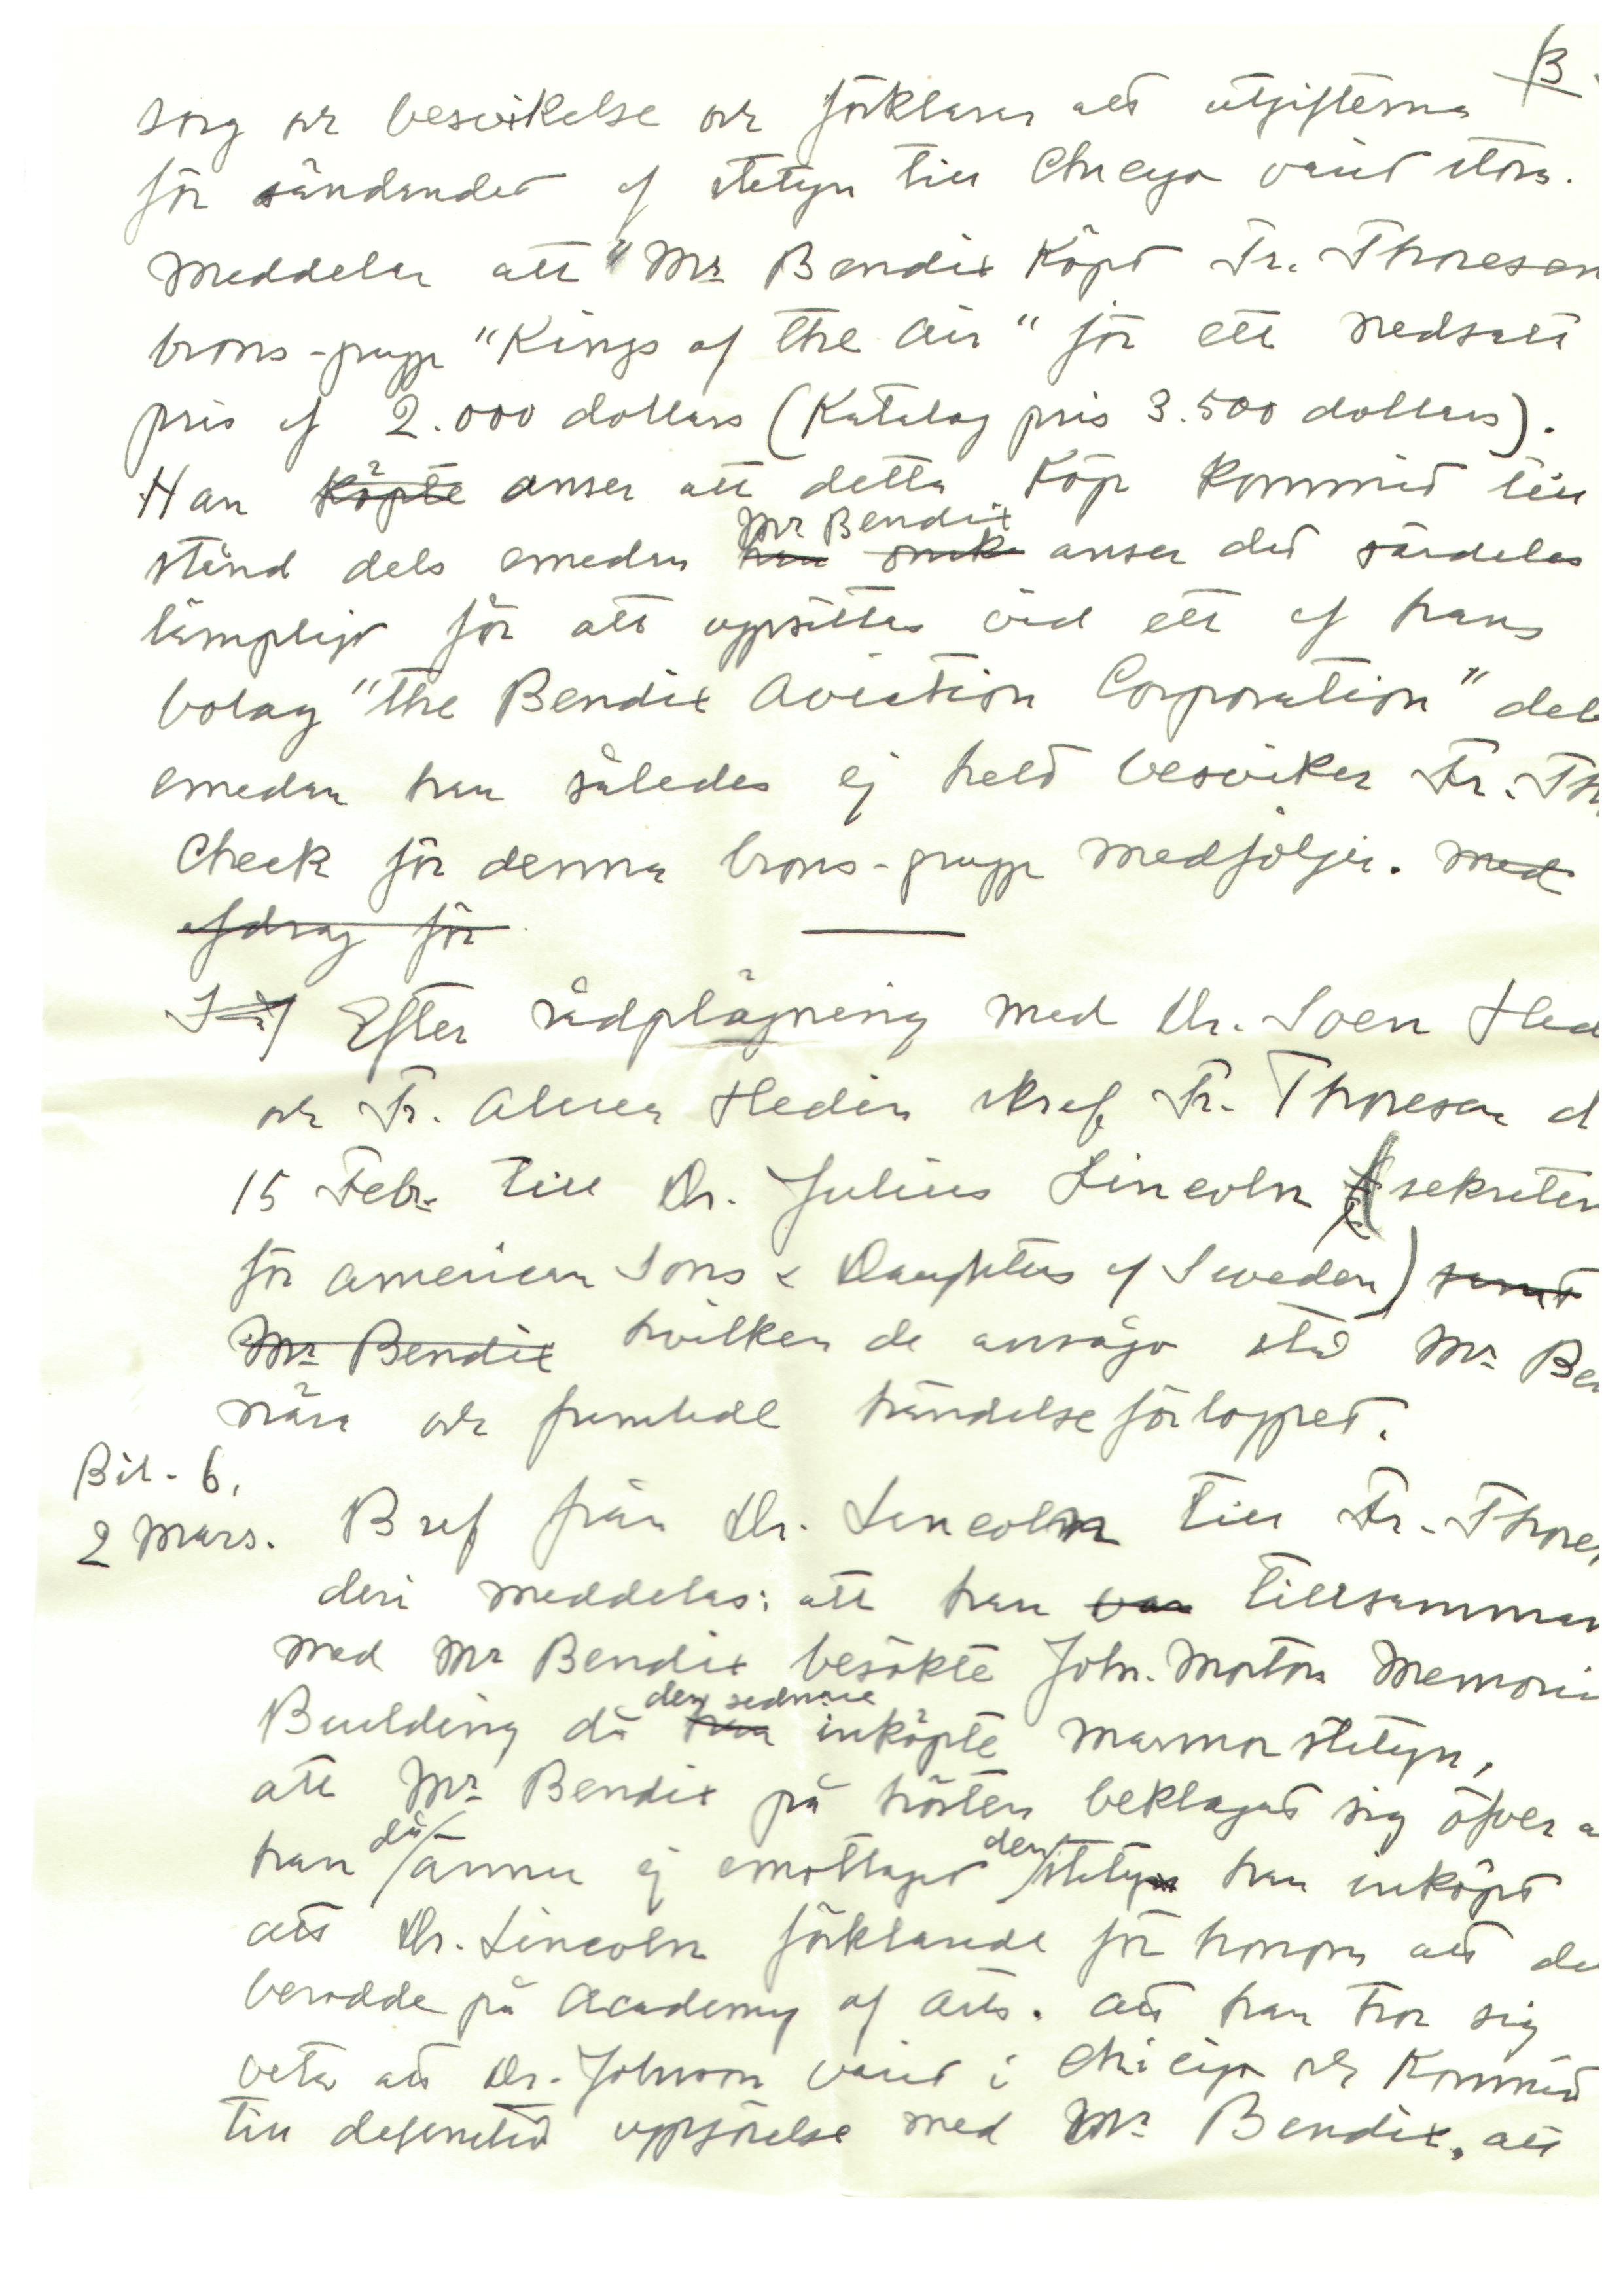 B.
sorg och besvikelse och förklarar att utgifterna
för sändandet af statyn till Chicago varit stora.
Meddelar att "Mr Bendix köpt Fr. Thoresen
brons-grupp "Kings of the Air" för ett nedsatt
pris af 2.000 dollars (Katalog pris 3.500 dollars).
Han köpte anser att detta köp kommit till
Mr Bendix
stånd dels emedan han anser det särdeles
lämpligt för att uppsättas vid ett af hans
bolag "the Bendix Aviation Corporation" dels
emedan han således ej helt besviker Fr. Th
Check för denna brons-grupp medföljer. med
afdrag för
Efter rådplägning med Dr. Sven Hed
och Fr. Alma Hedin skref Fr. Thoresen d
15 Febr. till Dr. Julius Lincoln (sekreter
för American Sons & Daughters of Sweden) samt
Mr Bendix hvilken de ansågo stå Mr Be
nära och framhöll händelseförloppet.
Bil. 6,
2 Mars. Bref från Dr. Lincoln till Fr. Thores
deri meddelas: att han var tillsamman
med Mr Bendix besökte John. Morton Memori
den sednare
Building då han inköpte marmor statyn,
att Mr Bendix på hösten beklagat sig öfver a
då den
han ännu ej emottaget staty han inköpt
att Dr. Lincoln förklarade för honom att de
berodde på Academy of Arts. att han tror sig
veta att Dr. Johnson varit i Chicago och kommit
till definitiv uppgörelse med Mr Bendix, att